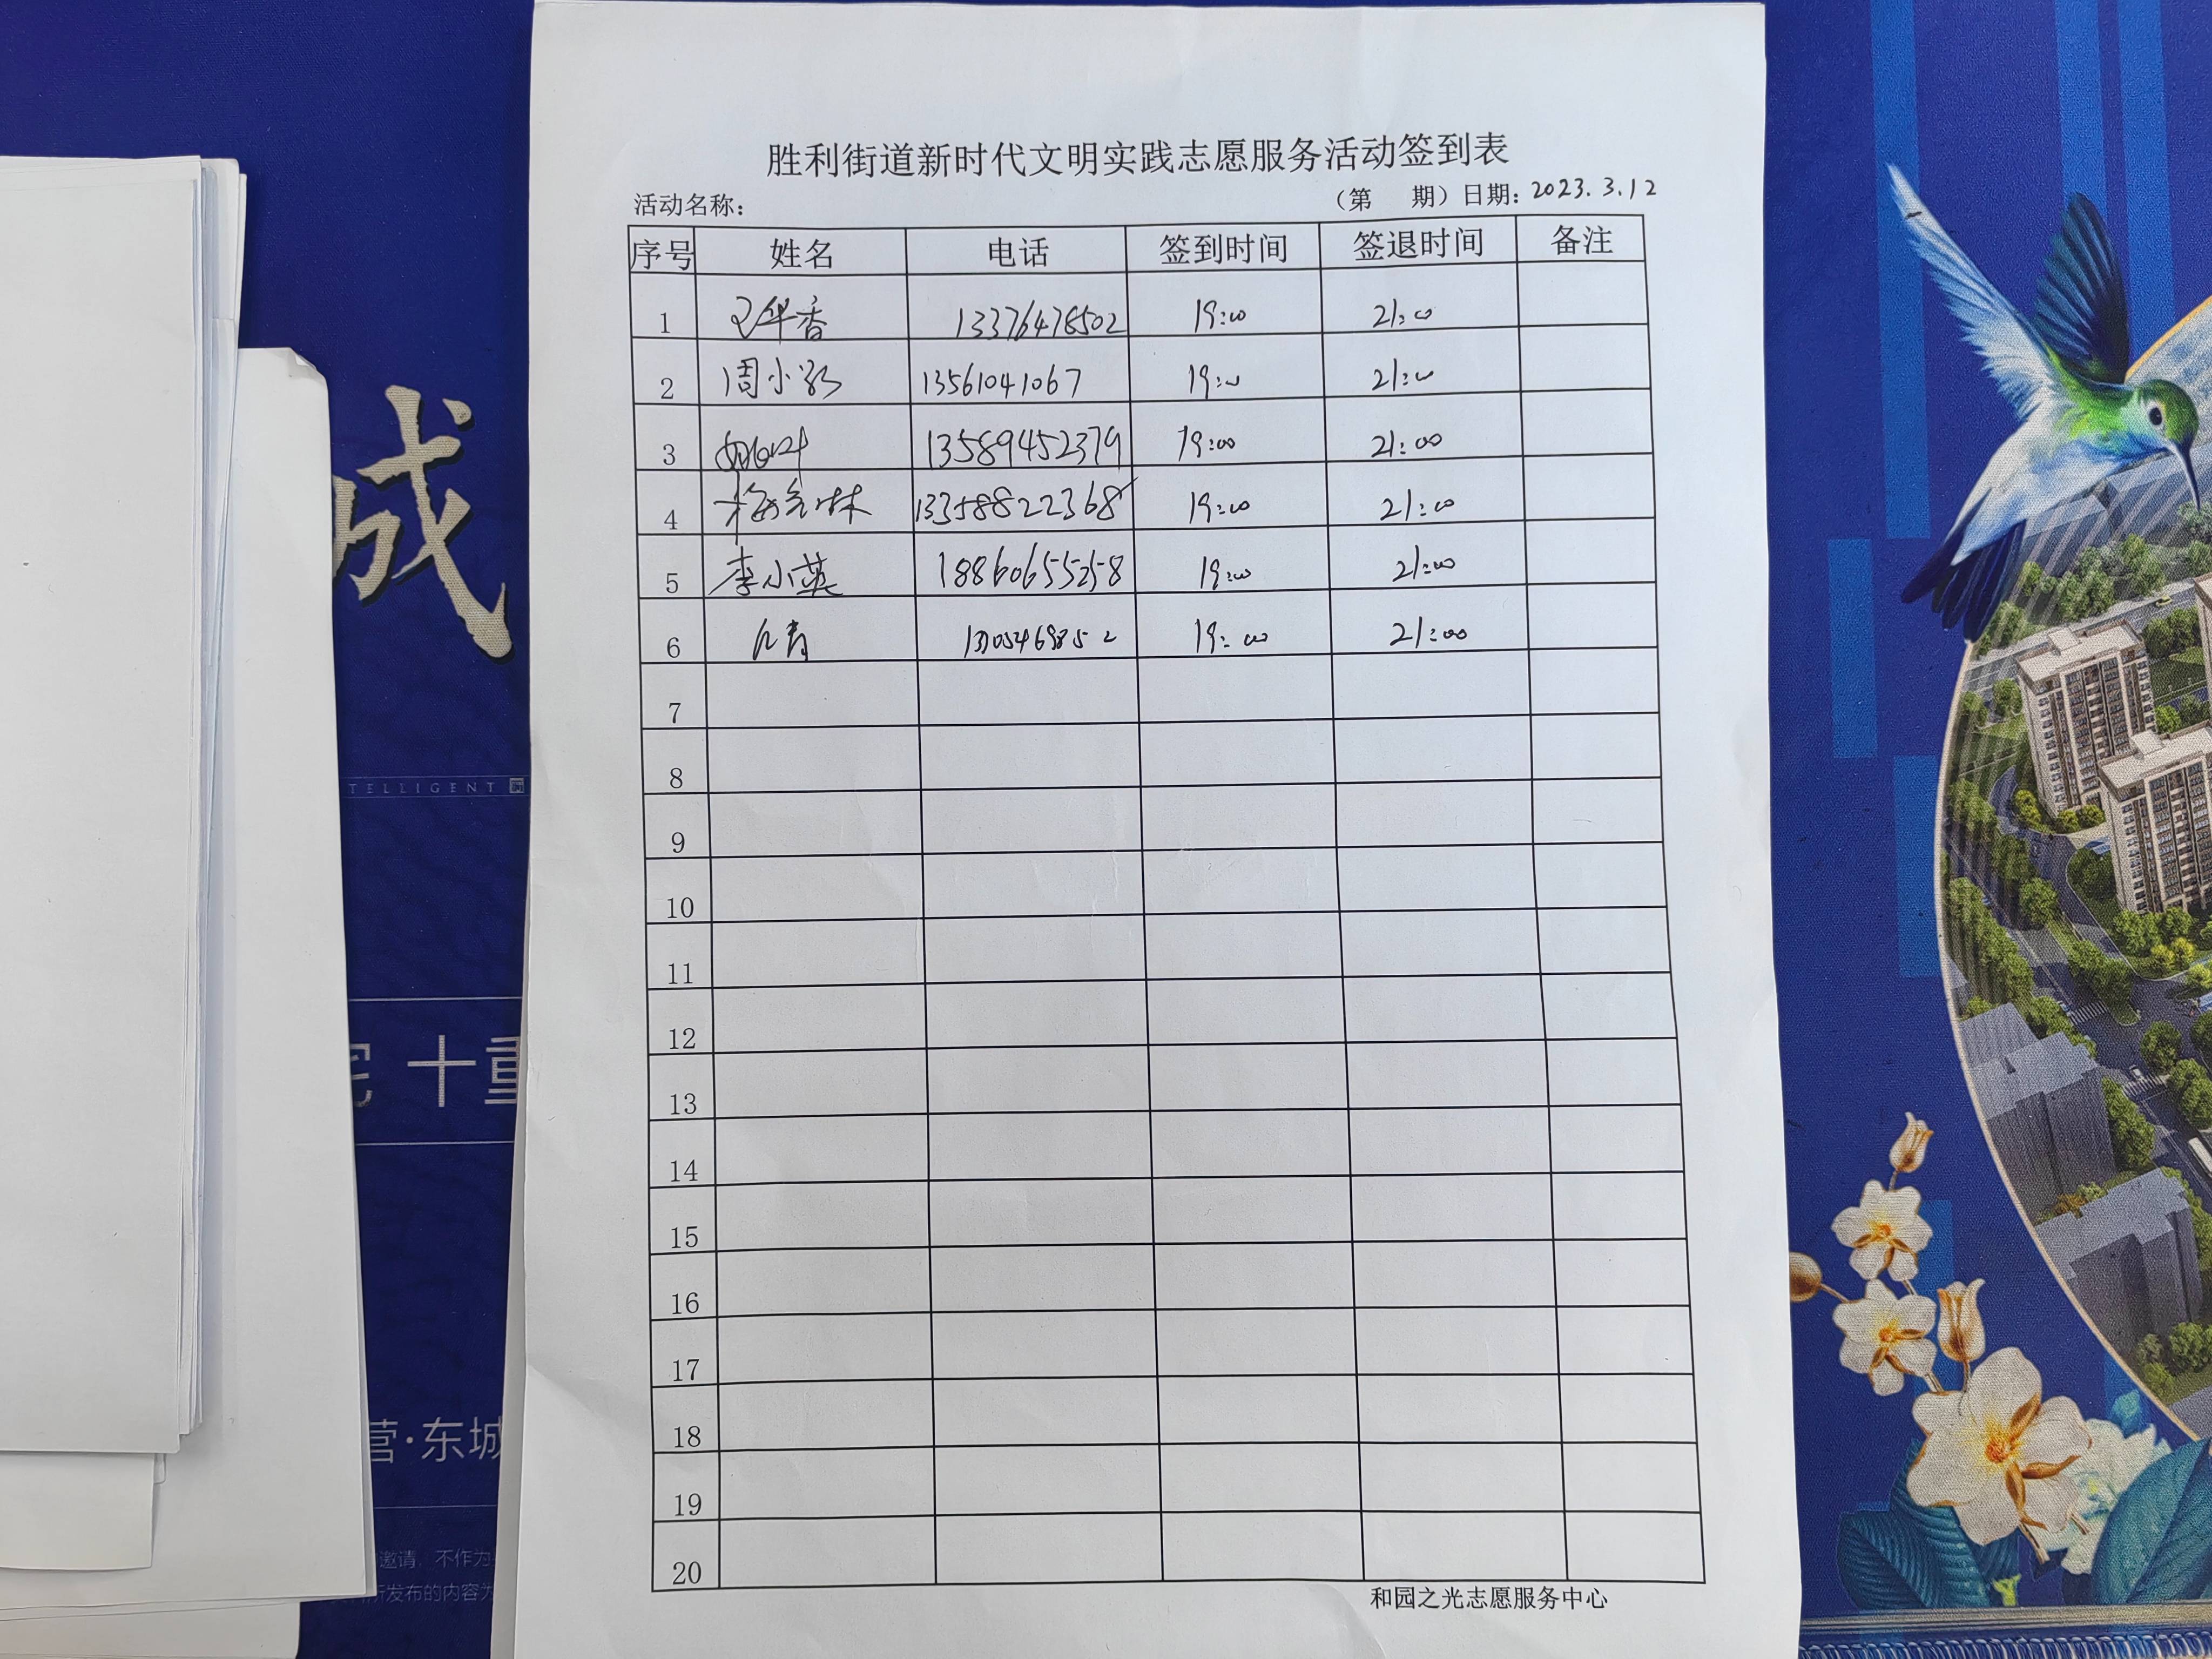 胜利街道新时代文明实践志愿服务活动签到表
活动名称： （第 期）日期：2023.3.12
序号 姓名 电话 签到时间 签退时间 备注
1 华香 13376478502 19:00 21:00
2 周小 13561041067 19:00 21:00
3 13589452379 19:00 21:00
4 梅 林 13358822368 19:00 21:00
5 李小英 18860655258 19:00 21:00
6 青 19:00 21:00
7
8
9
10
11
12
13
14
15
16
17
18
19
20
和园之光志愿服务中心
城
TELLIGENT
宅 十重
营·东城
邀请，不作为
所发布的内容为